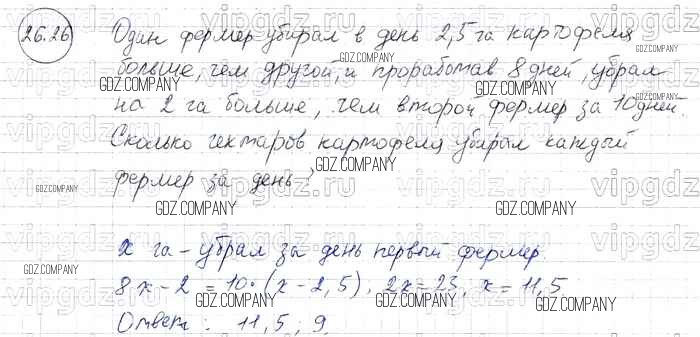 26.26 Один фермер убирал в день 2,5 га картофеля
больше, чем другой, и проработав 8 дней, убрал
на 2 га больше, чем второй фермер за 10 дней.
Сколько гектаров картофеля убирал каждый
фермер за день?
x га – убрал за день первый фермер.
8x – 2 = 10·(x – 2,5), 2x = 23, x = 11,5
Ответ: 11,5; 9.